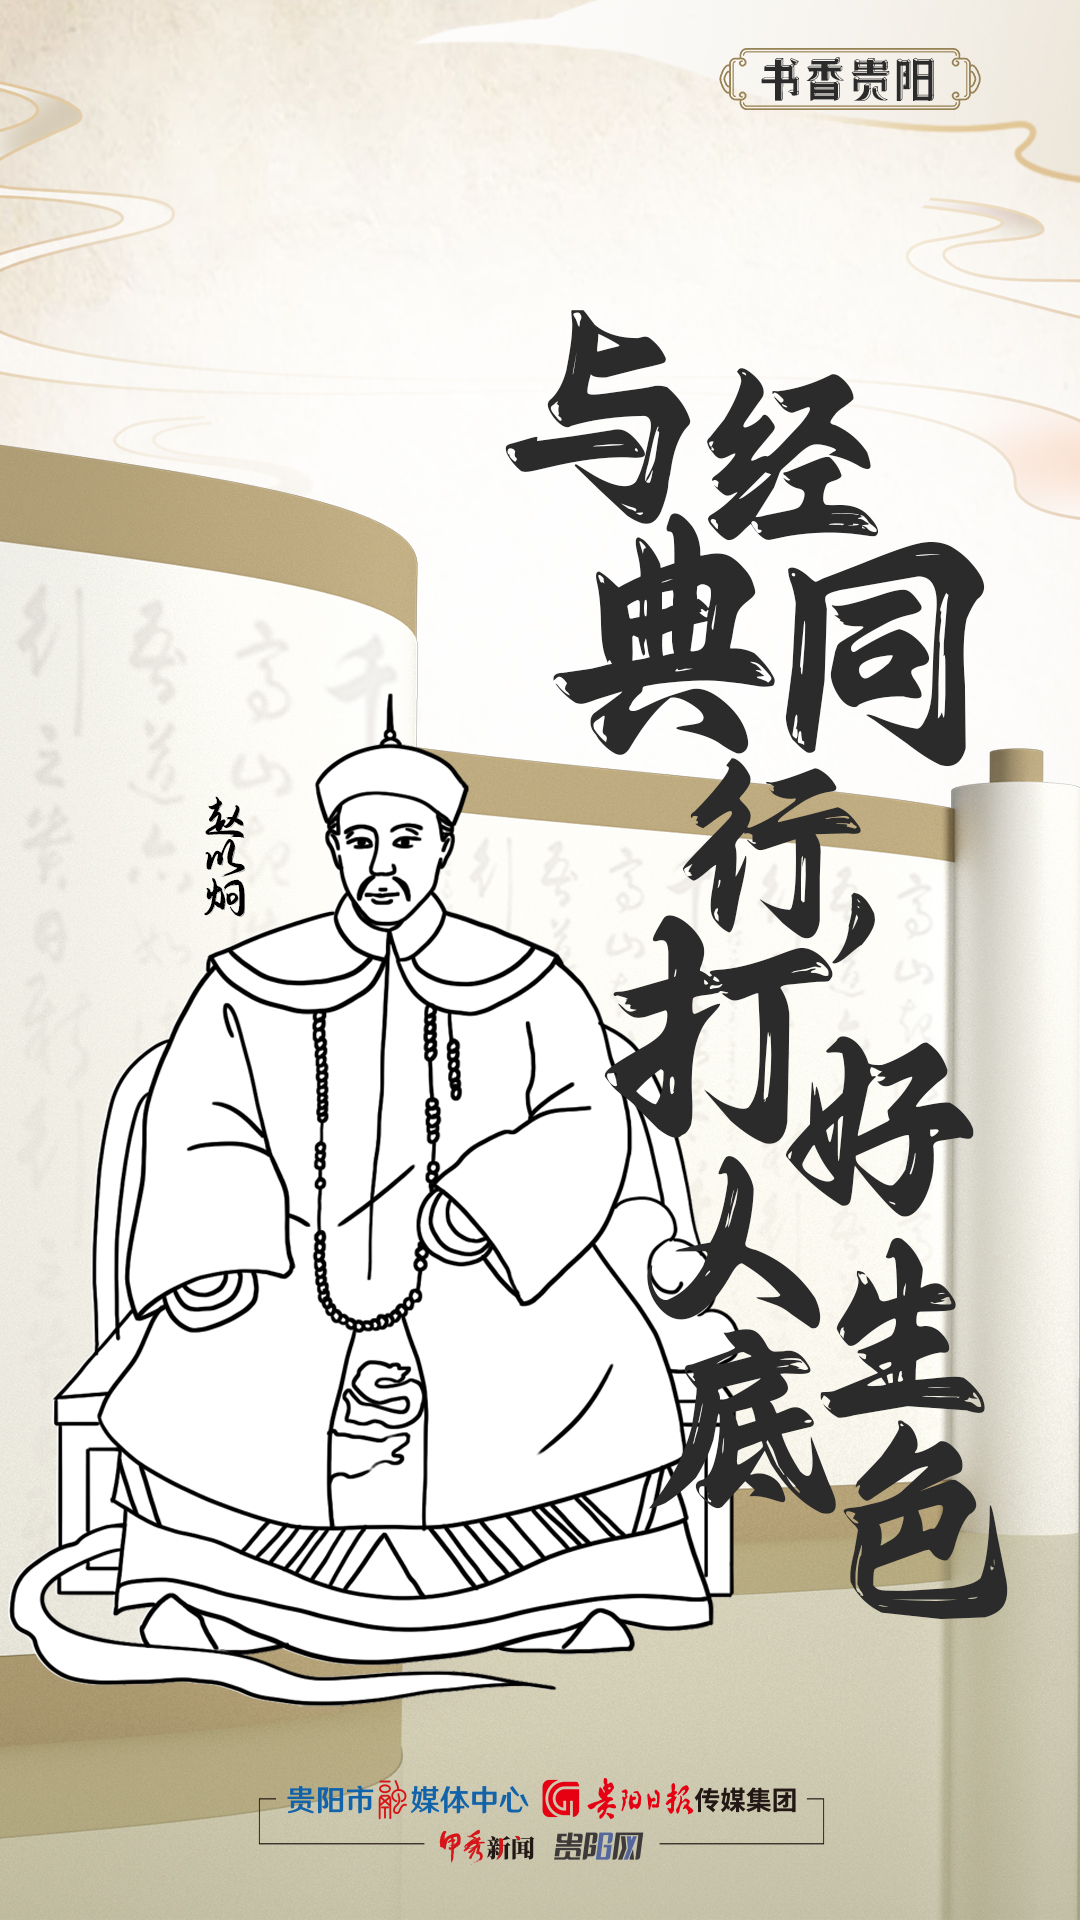 书香贵阳
与经
典同
行,
打好
人生
底色
赵以炯
贵阳市融媒体中心 贵阳日报传媒集团
甲秀新闻 贵阳网